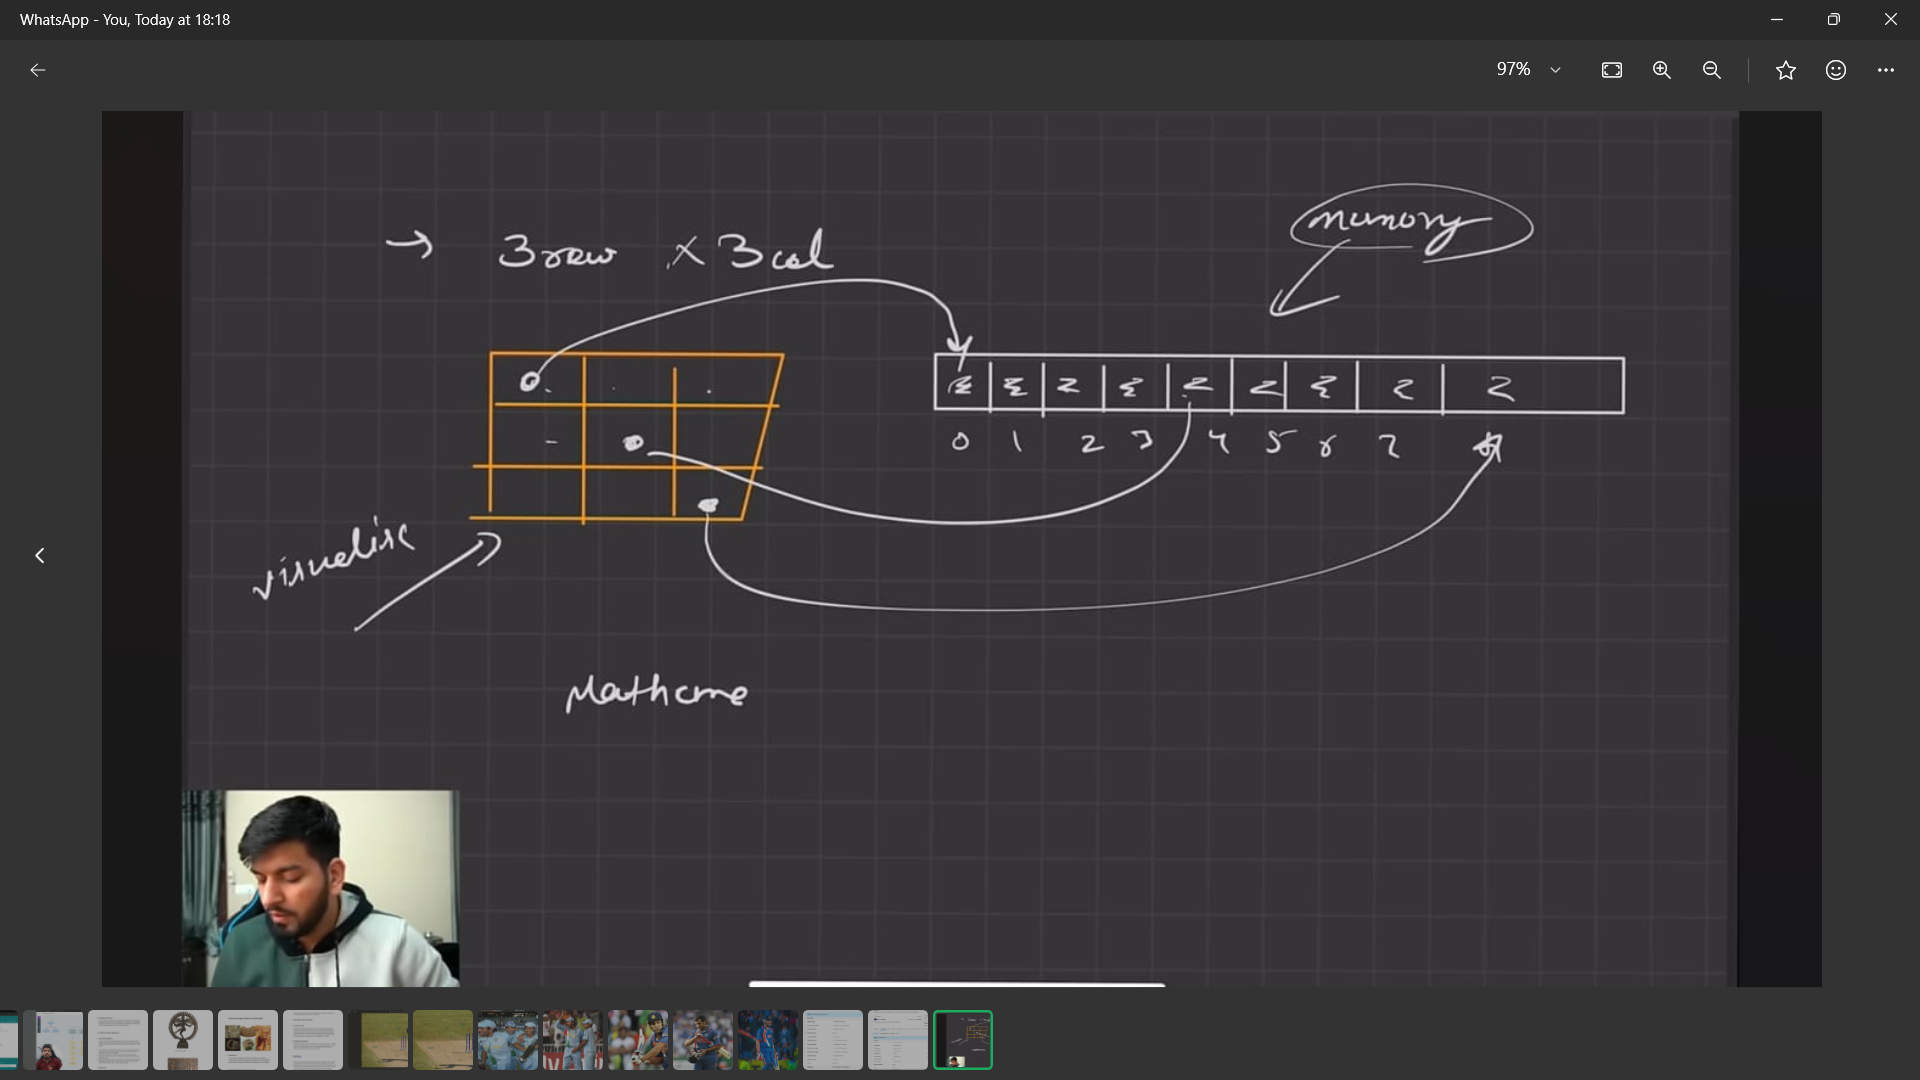 WhatsApp - You, Today at 18:18
97%
→ 3 row × 3 col
memory
0 1 2 3 4 5 6 7
visualise
Matheme